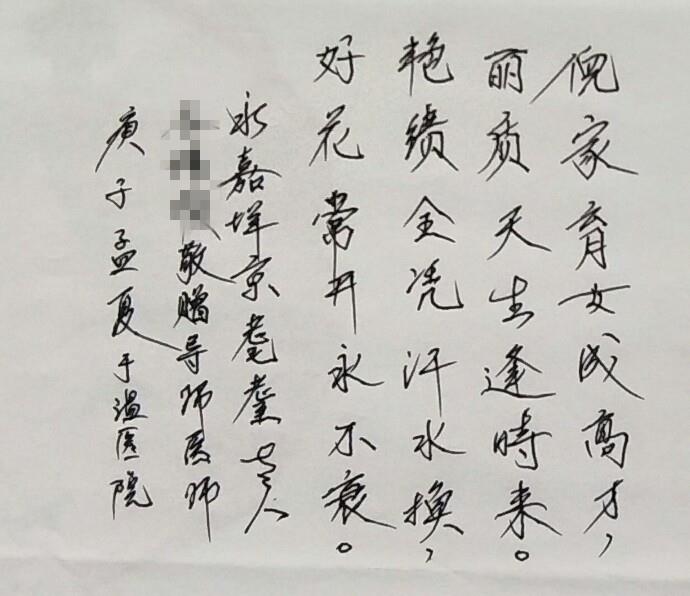 倪家育女成高才，
丽质天生逢時来。
艳绩全凭汗水换，
好花常开永不衰。
永嘉垟京耄耋老人
敬赠导师医师
庚子孟夏于温医院